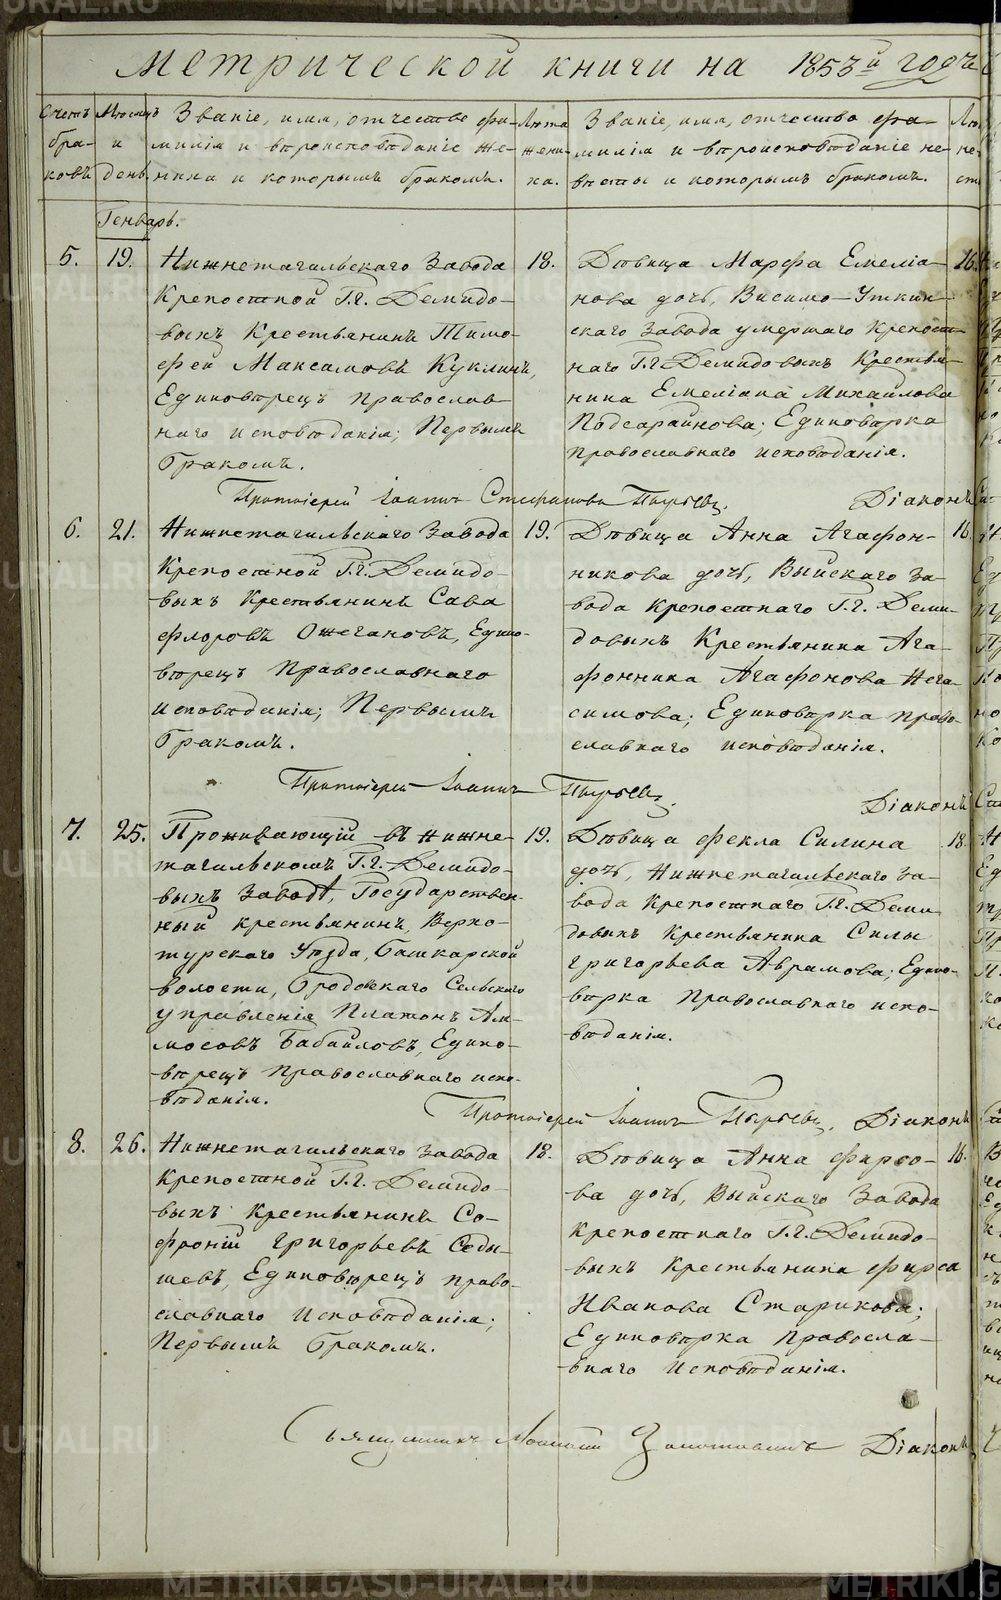 метрической книги на 1853й годъ
Счетъ браковъ
Мѣсяцъ и день.
Званіе, имя, отчество фамилія и вѣроисповѣданіе жениха и которымъ бракомъ.
Лѣта жениха.
Званіе, имя, отчество фамилія и вѣроисповѣданіе невѣсты и которымъ бракомъ.
Генварь.
5. 19.
Нижнетагильскаго Завода
Крепостной Г.г. Демидо-
выхъ Крестьянинъ Тимо-
фей Максимовъ Куклинъ,
Единовѣрецъ Православ-
наго исповѣданія; Первымъ
Бракомъ.
18.
Дѣвица Марфа Емеліа-
нова дочь, Висимо-Уткин-
скаго Завода умершаго Крепост-
наго Г.г. Демидовыхъ Крестья-
нина Емеліана Михайлова
Подсарайнова; Единовѣрка
православнаго исповѣданія.
16.
Протоіерей Іоаннъ Стефановъ Пырьевъ. Діаконъ
6. 21.
Нижнетагильскаго Завода
Крепостной Г.г. Демидо-
выхъ Крестьянинъ Сава
Флоровъ Ожегановъ, Едино-
вѣрецъ Православнаго
исповѣданія; Первымъ
Бракомъ.
19.
Дѣвица Анна Агафон-
никова дочь, Выйскаго За-
вода Крепостнаго Г.г. Деми-
довыхъ Крестьянина Ага-
фонника Агафонова
симова; Единовѣрка право-
славнаго исповѣданія.
16.
Протоіерей Іоаннъ Пырьевъ. Діаконъ
7. 25.
Проживающій въ Нижне-
тагильскомъ Г.г. Демидо-
выхъ Заводѣ, Государствен-
ный крестьянинъ, Верхо-
турскаго Уѣзда, Башкарской
волости, Бродовскаго Сельскаго
управленія Платонъ Ам-
мосовъ Бабайловъ, Едино-
вѣрецъ православнаго испо-
вѣданія.
19.
Дѣвица Фекла Силина
дочь, Нижнетагильскаго За-
вода Крепостнаго Г.г. Деми-
довыхъ Крестьянина Силы
Григорьева Аврамова; Едино-
вѣрка Православнаго испо-
вѣданія.
18.
Протоіерей Іоаннъ Пырьевъ. Діаконъ
8. 26.
Нижнетагильскаго Завода
Крепостной Г.г. Демидо-
выхъ Крестьянинъ Со-
фроній Григорьевъ Седы-
шевъ, Единовѣрецъ право-
славнаго Исповѣданія;
Первымъ Бракомъ.
18.
Дѣвица Анна Фирсо-
ва дочь, Выйскаго Завода
Крепостнаго Г.г. Демидо-
выхъ Крестьянина Фирса
Иванова Старикова;
Единовѣрка Правосла-
внаго Исповѣданія.
16.
Священникъ Діаконъ
METRIKI.GASO-URAL.RU